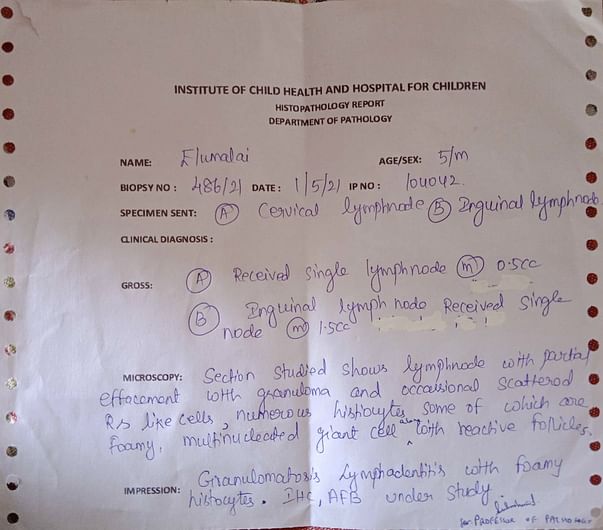 INSTITUTE OF CHILD HEALTH AND HOSPITAL FOR CHILDREN
HISTOPATHOLOGY REPORT
DEPARTMENT OF PATHOLOGY
NAME: Elumalai AGE/SEX: 5/m
BIOPSY NO: 486/21 DATE: 1/5/21 IP NO: 104042.
SPECIMEN SENT: (A) Cervical lymphnode (B) Inguinal lymphnode
CLINICAL DIAGNOSIS:
GROSS: (A) Received single lymphnode (m) 0.5cc
(B) Inguinal lymph node Received single
node (m) 1.5cc
MICROSCOPY: Section studied shows lymphnode with partial
effacement with granuloma and occasional scattered
Rs like cells, numerous histiocytes some of which are
foamy, multinucleated giant cell along with reactive follicles.
IMPRESSION: Granulomatosis Lymphadentitis with foamy
histocytes. IHC, AFB under study
PROFESSOR OF PATHOLOGY